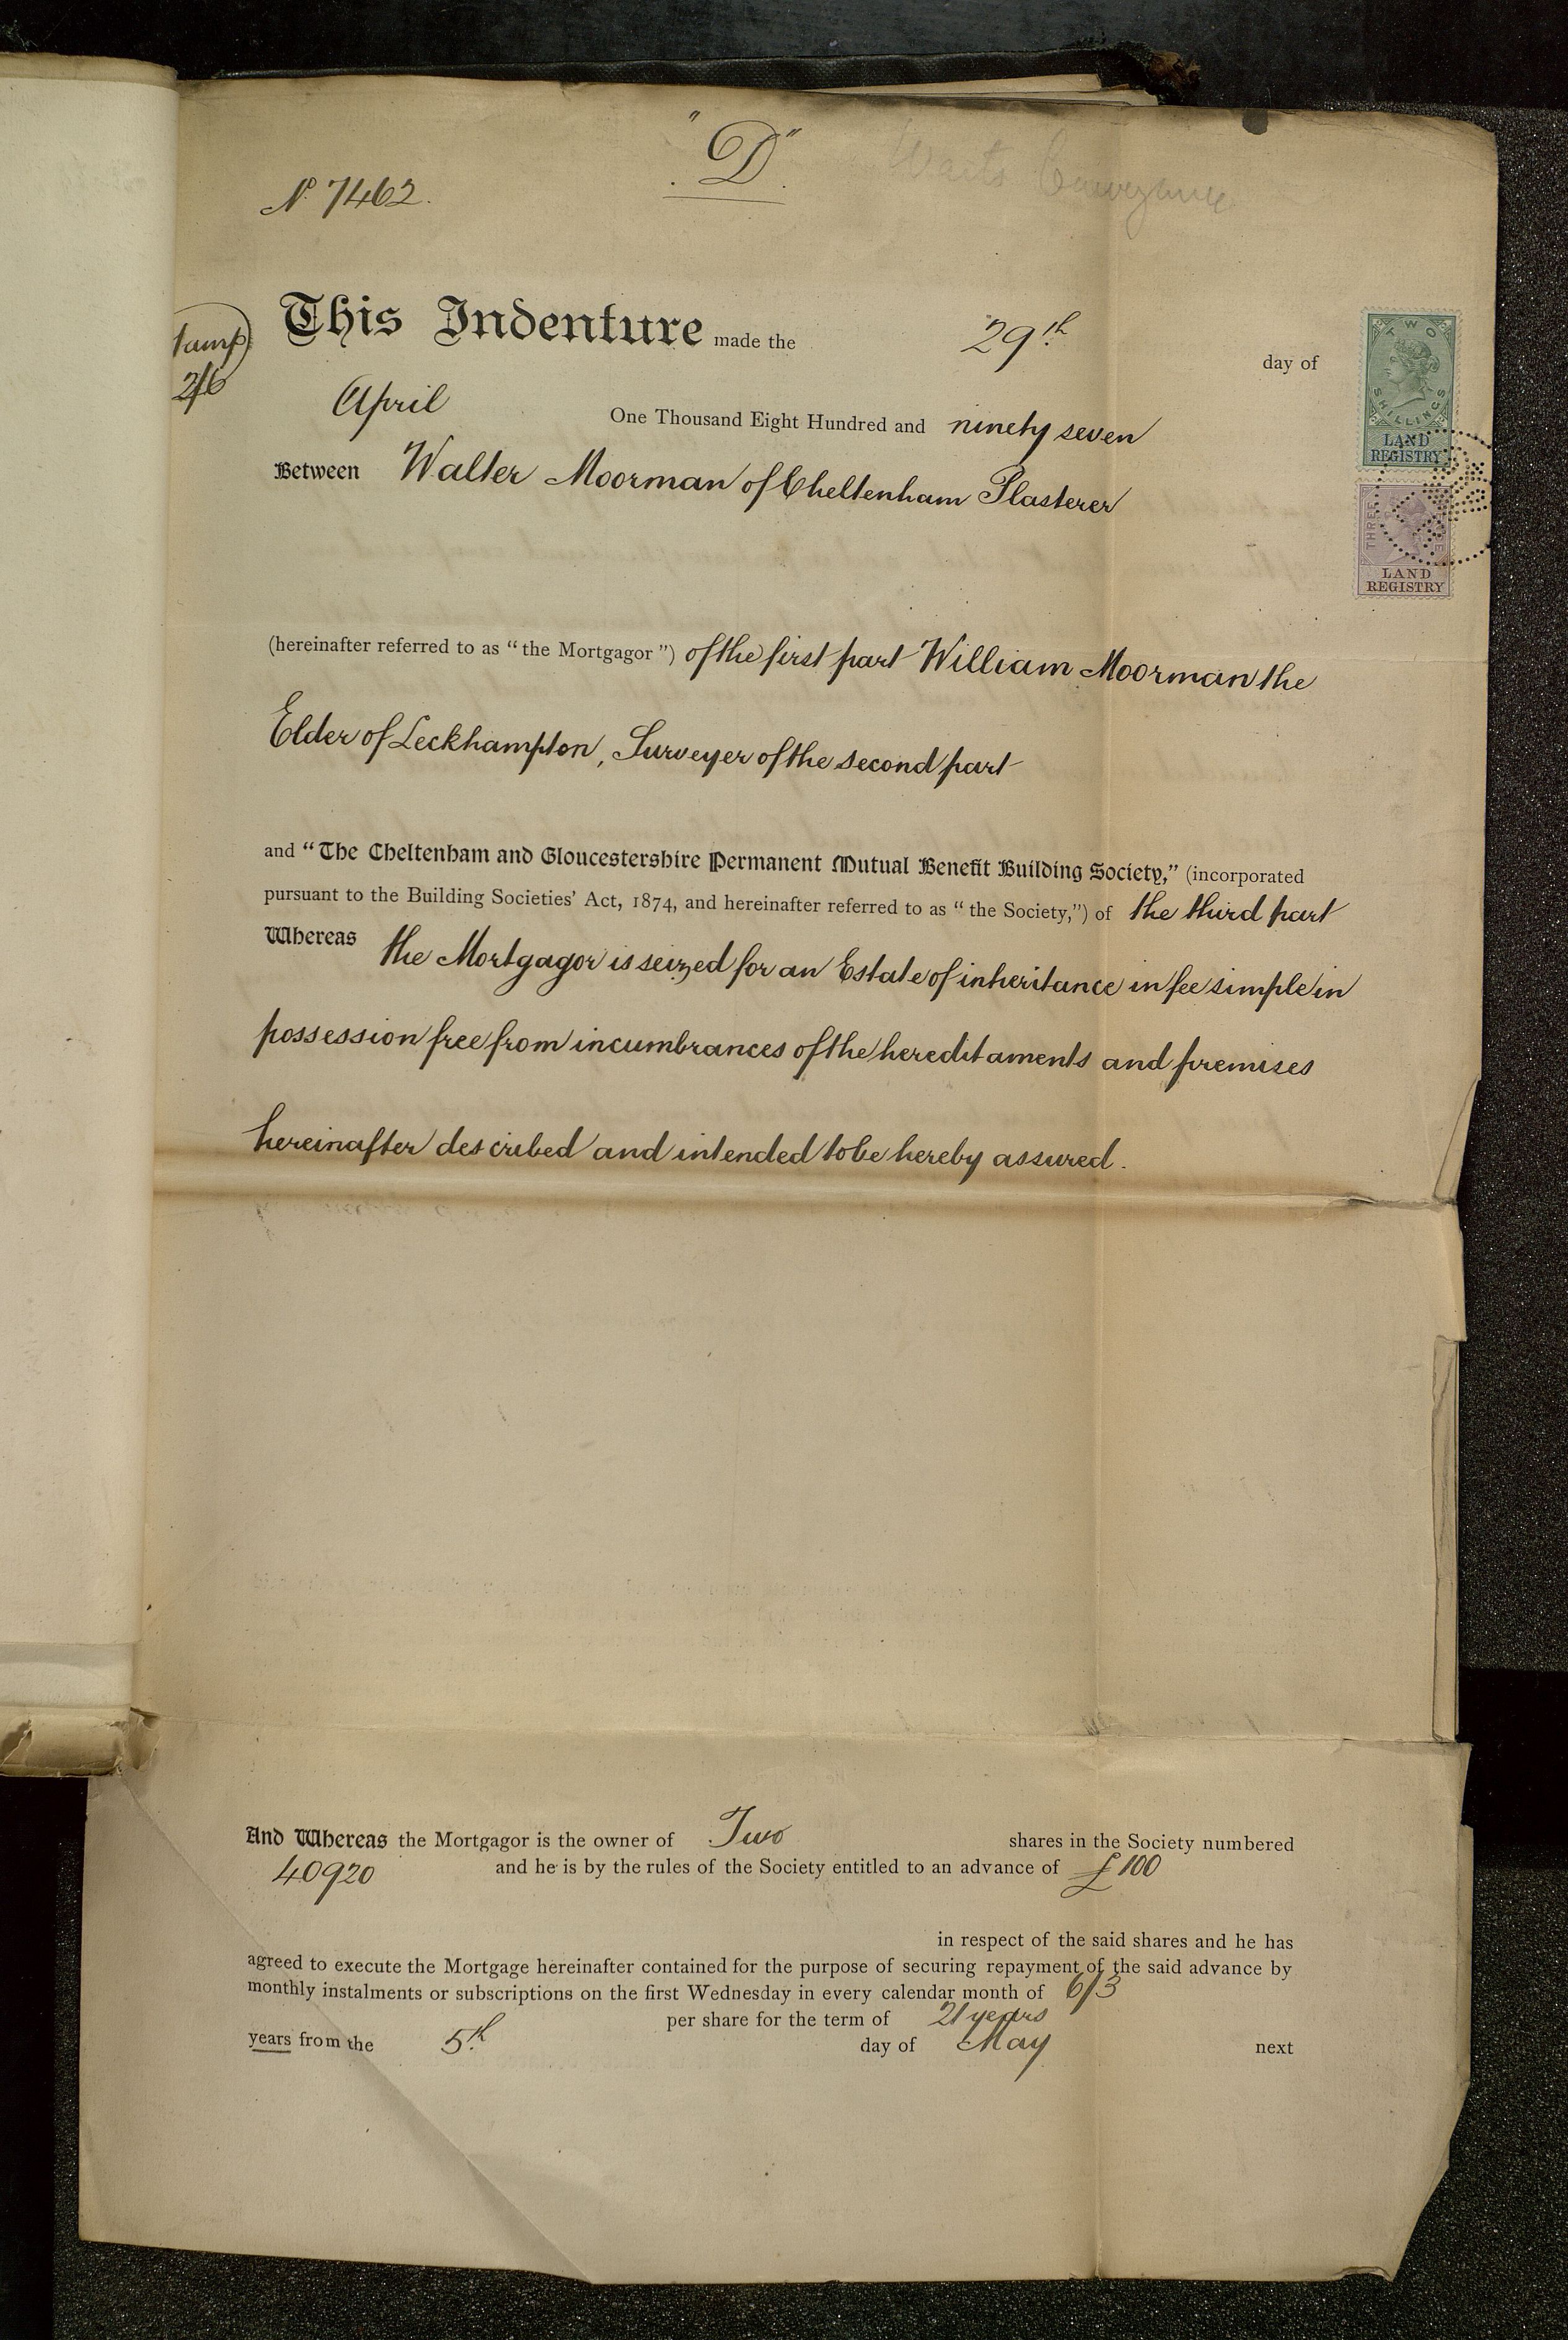 "D"
Waits Conveyance
No 7462.
This Indenture made the 29th day of
Stamp
2/6
April One Thousand Eight Hundred and ninety seven
Between Walter Moorman of Cheltenham Plasterer
TWO SHILLINGS
LAND
REGISTRY
THREE
LAND
REGISTRY
(hereinafter referred to as "the Mortgagor") of the first part William Moorman the
Elder of Leckhampton, Surveyer of the second part
and "The Cheltenham and Gloucestershire Permanent Mutual Benefit Building Society," (incorporated
pursuant to the Building Societies' Act, 1874, and hereinafter referred to as "the Society,") of the third part
Whereas the Mortgagor is seized for an Estate of inheritance in fee simple in
possession free from incumbrances of the hereditaments and premises
hereinafter described and intended to be hereby assured.
And Whereas the Mortgagor is the owner of Two shares in the Society numbered
40920 and he is by the rules of the Society entitled to an advance of £100
in respect of the said shares and he has
agreed to execute the Mortgage hereinafter contained for the purpose of securing repayment of the said advance by
monthly instalments or subscriptions on the first Wednesday in every calendar month of 6/3
per share for the term of 21 years
years from the 5th day of May next